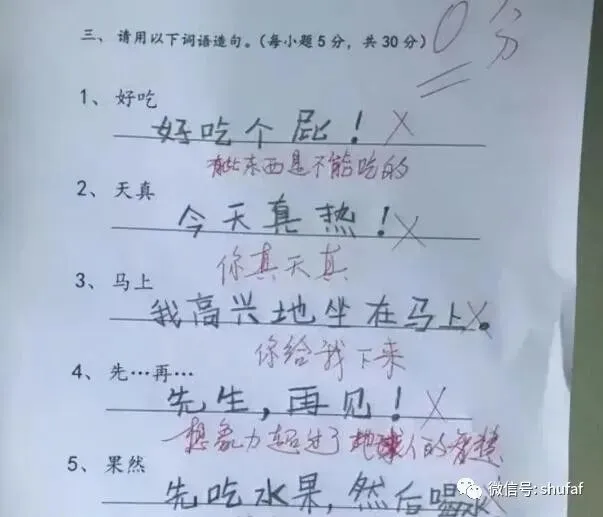 三、请用以下词语造句。(每小题5分，共30分)
0分
1、好吃
好吃个屁！×
有些东西是不能吃的
2、天真
今天真热！×
你真天真
3、马上
我高兴地坐在马上。×
你给我下来
4、先…再…
先生，再见！×
想象力超过了地球人的智慧
5、果然
先吃水果，然后喝水
微信号: shufaf